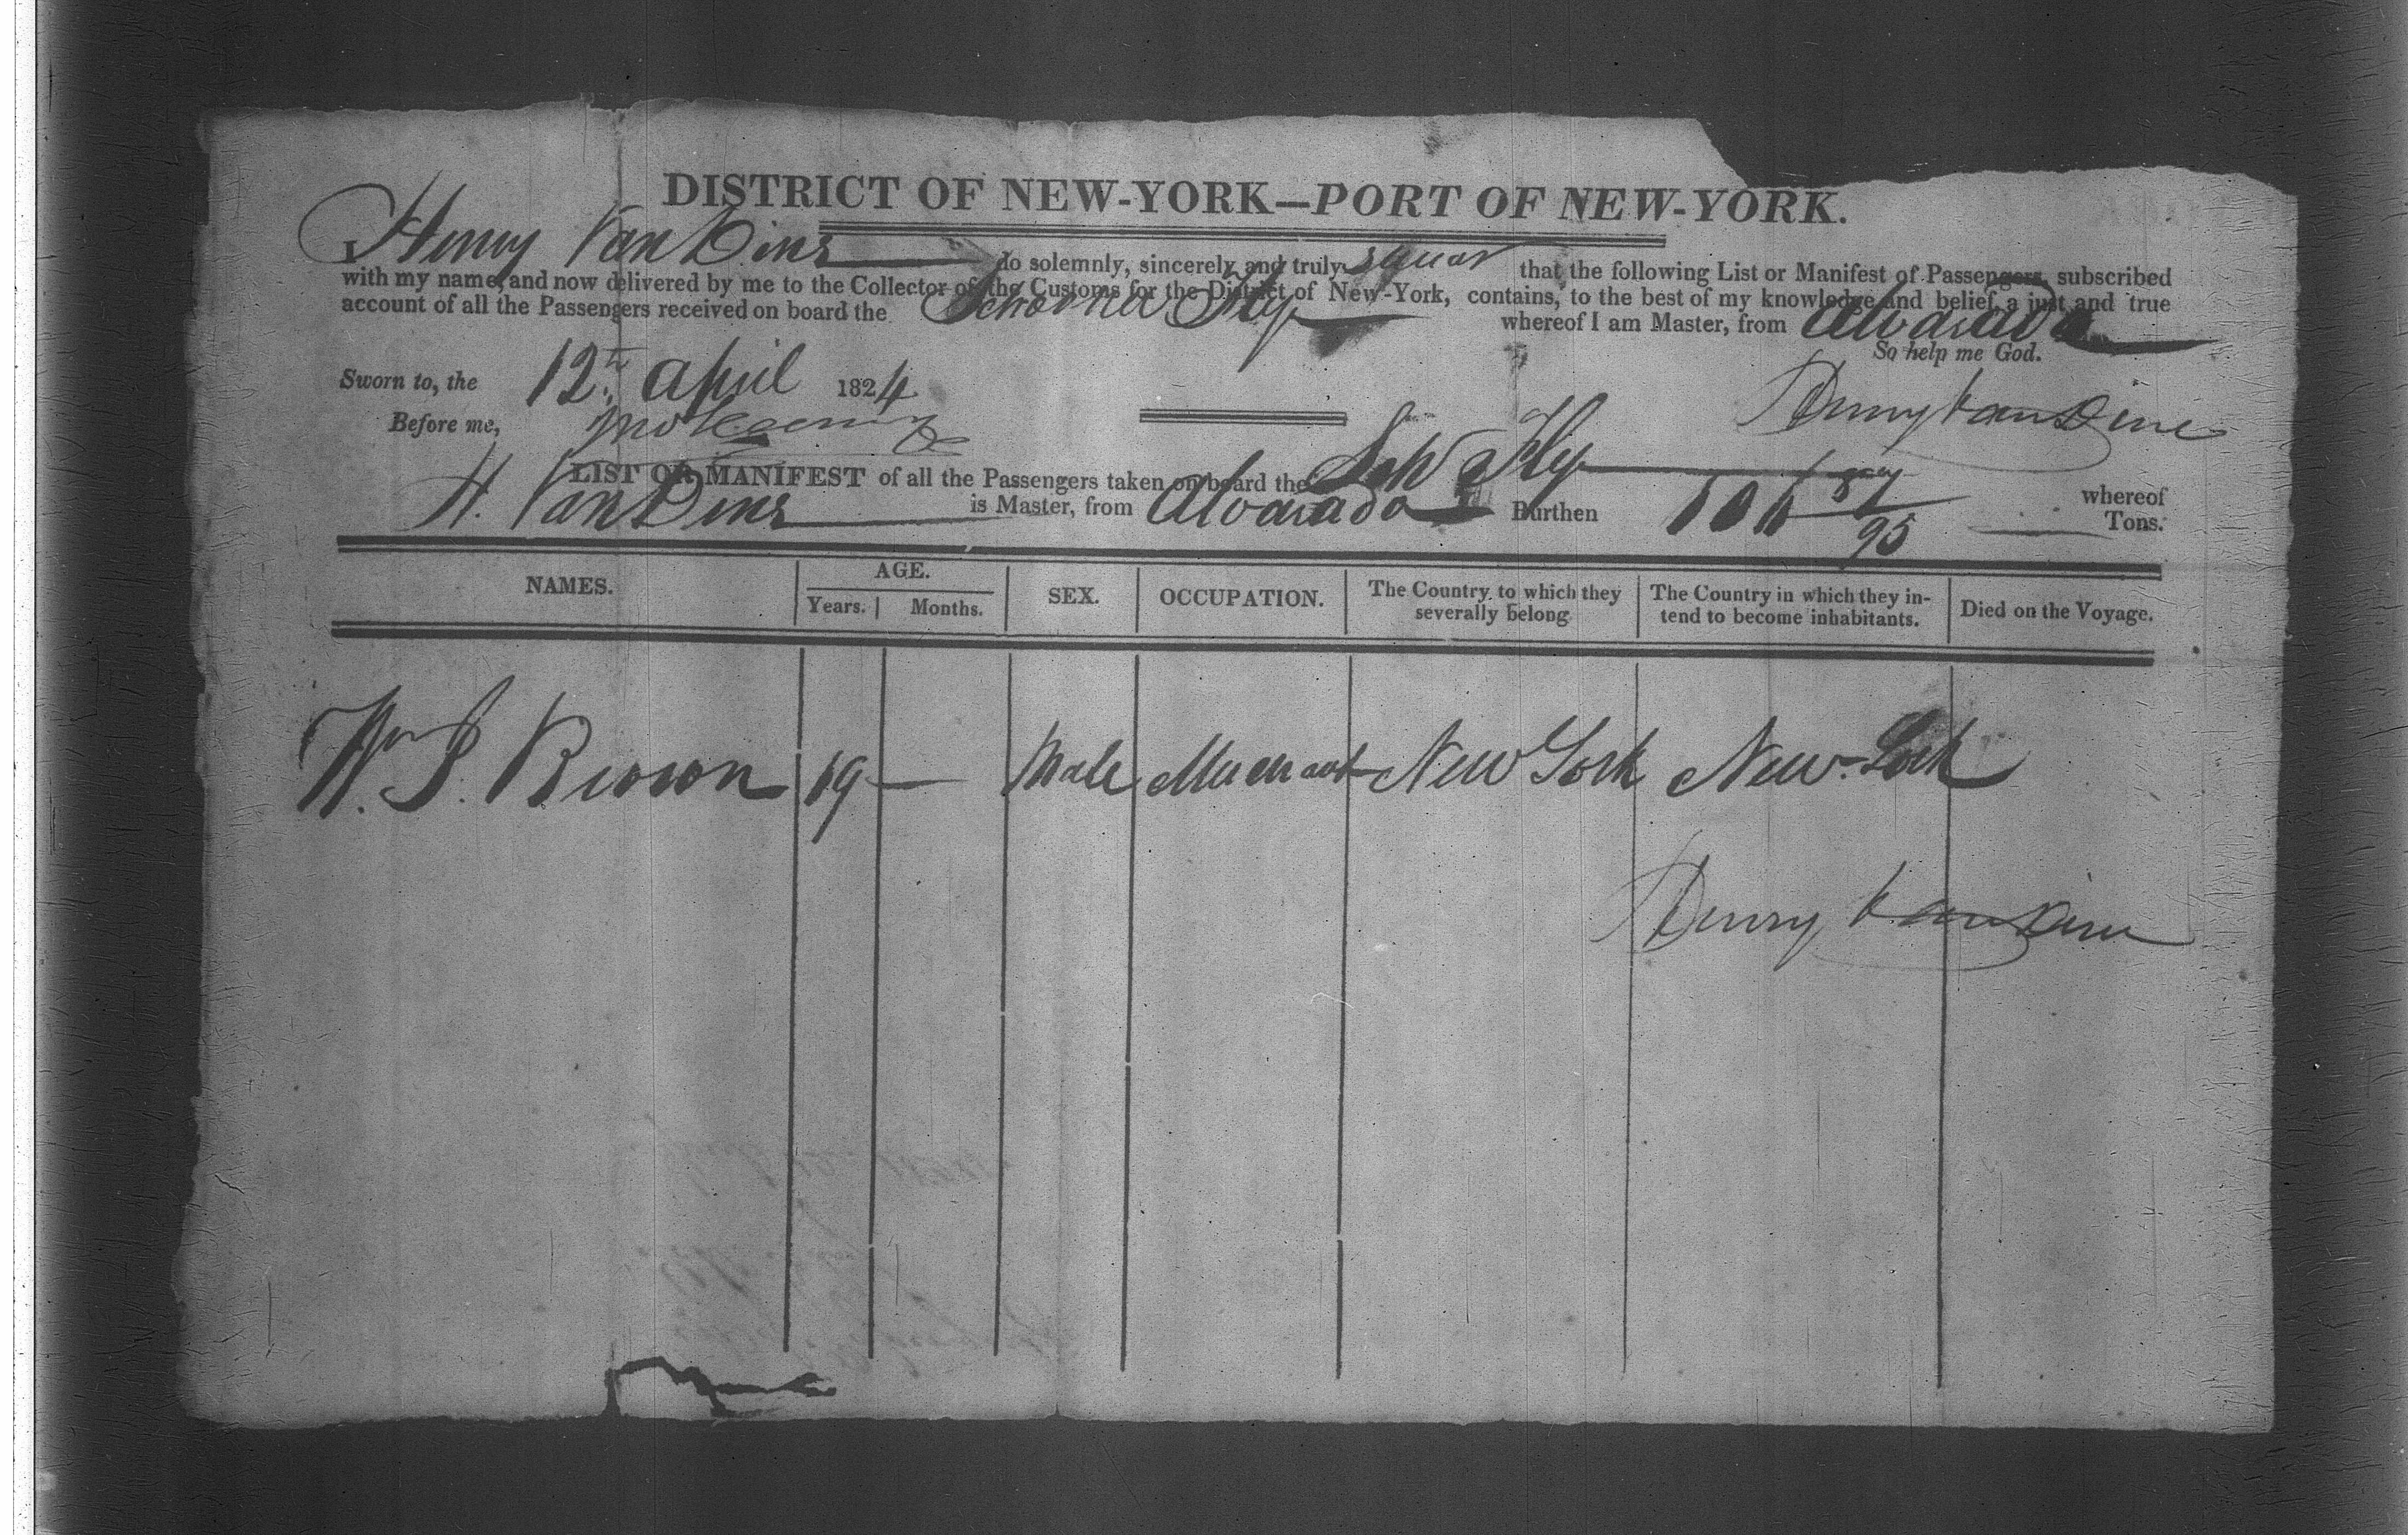 DISTRICT OF NEW-YORK—PORT OF NEW-YORK.
Henry Van Dine do solemnly, sincerely and truly swear that the following List or Manifest of Passengers, subscribed
with my name, and now delivered by me to the Collector of the Customs for the District of New-York, contains, to the best of my knowledge and belief, a just and true
account of all the Passengers received on board the Schooner Fly whereof I am Master, from Alvarado
So help me God.
Sworn to, the 12th April 1824
Henry Van Dine
Before me,
LIST OR MANIFEST of all the Passengers taken on board the Schr Fly whereof
H. Van Dine is Master, from Alvarado Burthen 106 87/95 Tons.
NAMES. AGE. SEX. OCCUPATION. The Country to which they severally belong The Country in which they intend to become inhabitants. Died on the Voyage.
Years. Months.
Wm J. Brown 19 — Male Merchant New York New-York
Henry Van Dine